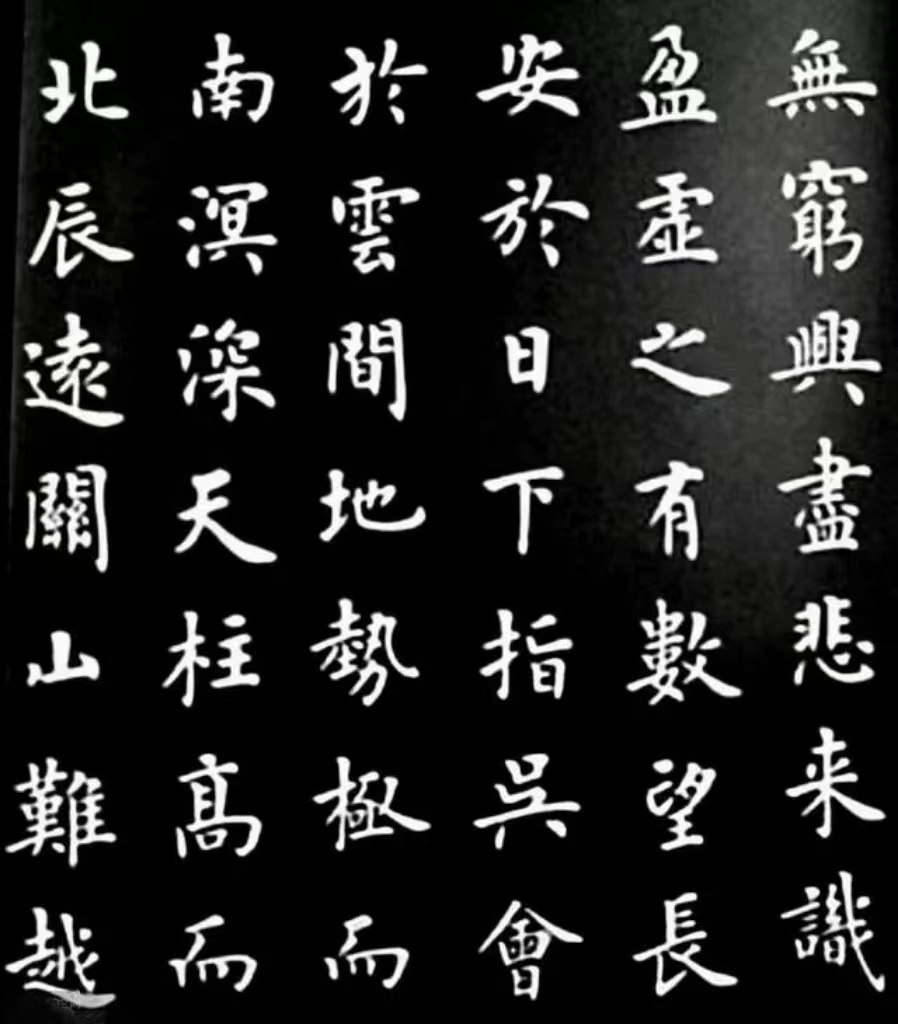 無窮興盡悲来識
盈虛之有數望長
安於日下指吳會
於雲間地勢極而
南溟深天柱高而
北辰遠關山難越